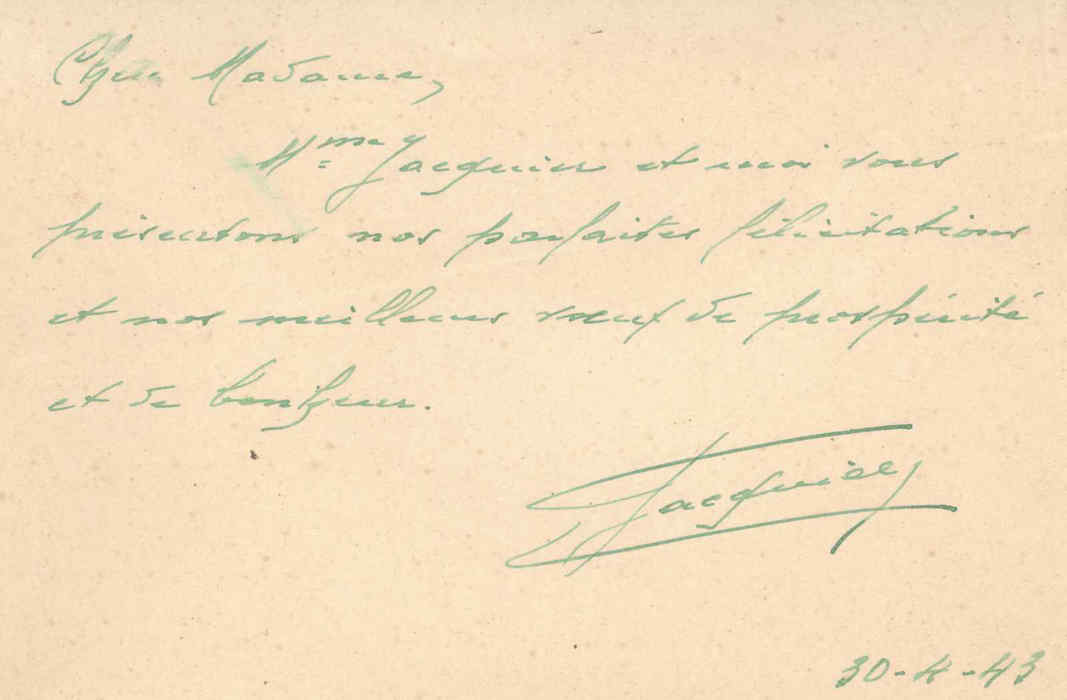 Chère Madame,
Mme Jacquier et moi vous
présentons nos parfaites félicitations
et nos meilleurs vœux de prospérité
et de bonheur.
Jacquier
30-4-43